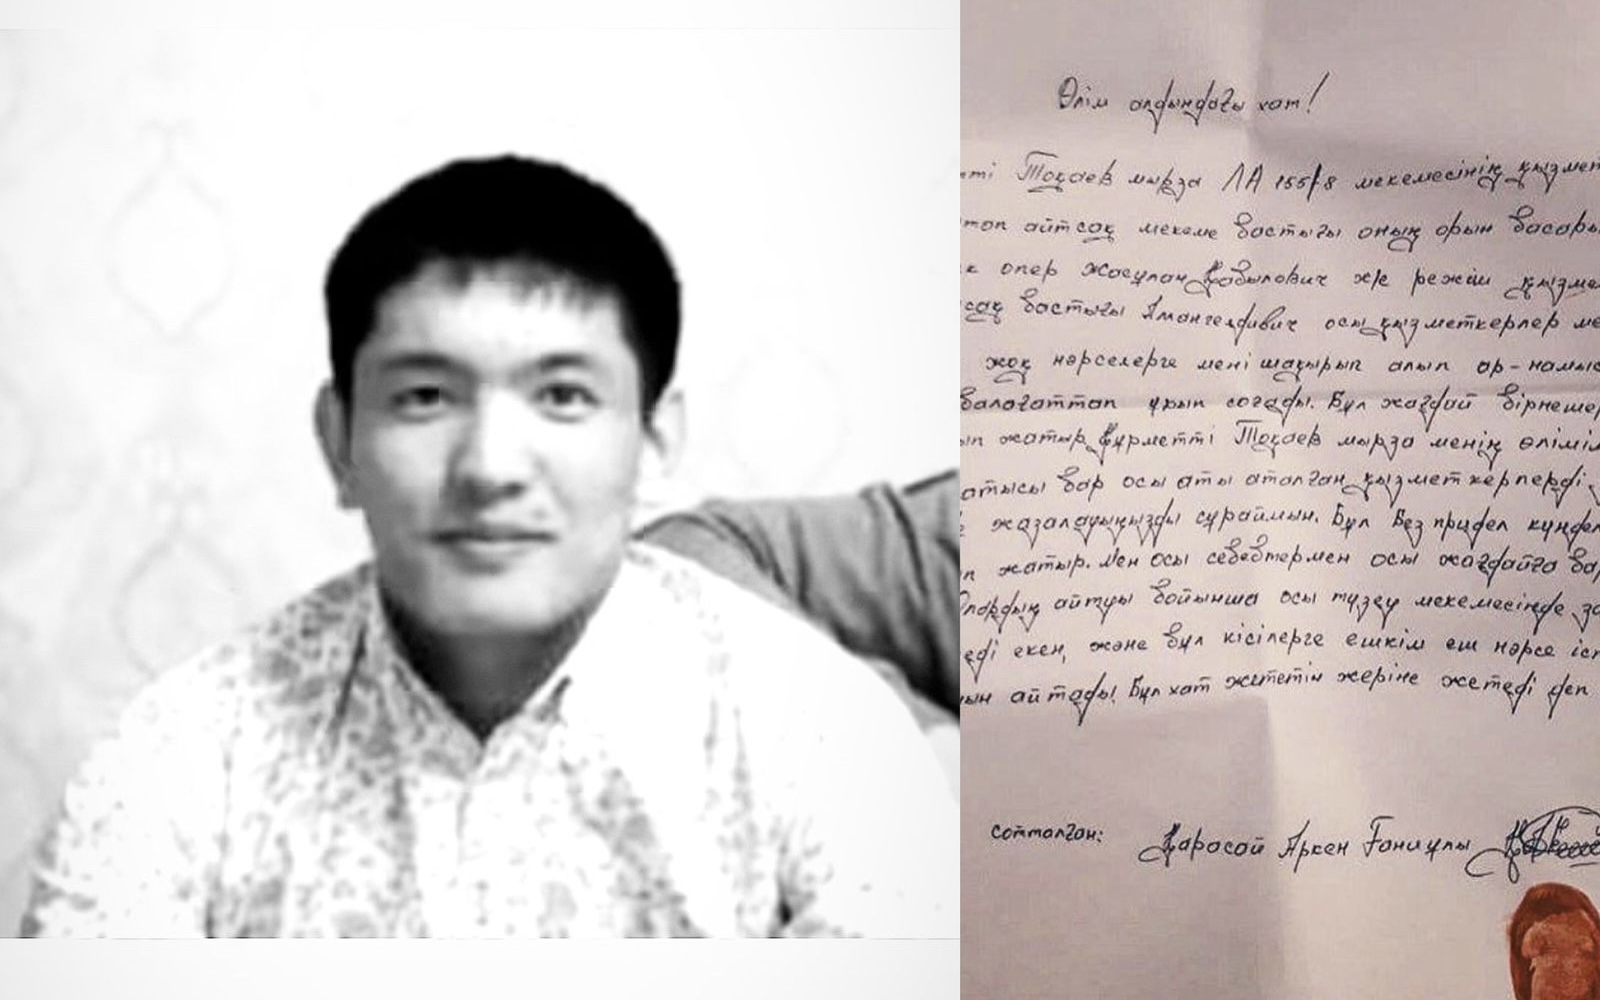 Өлім алдындағы хат!
мті Тоқаев мырза ЛА 155/8 мекемесінің қызмет
тап айтсақ мекеме бастығы оның орын басары
к опер Жасұлан Қабылович ж/е режим қызме
сақ бастығы Амангелдивич осы қызметкерлер ме
жоқ нәрселерге мені шақырып алып ар-намыс
балағаттап ұрып соғады. Бұл жағдай бірнеше
ып жатыр Құрметті Тоқаев мырза менің өлімім
атысы бар осы аты аталған қызметкерлерді
жазалауыңызды сұраймын. Бұл Без придел күнде
п жатыр. Мен осы себебтермен осы жағдайға ба
Олардың айтуы бойынша осы түзеу мекемесінде за
еді екен, және бұл кісілерге ешкім еш нәрсе іс
ын айтады! Бұл хат жететін жеріне жетеді деп
сотталған: Қарасай Аркен Ғаниұлы